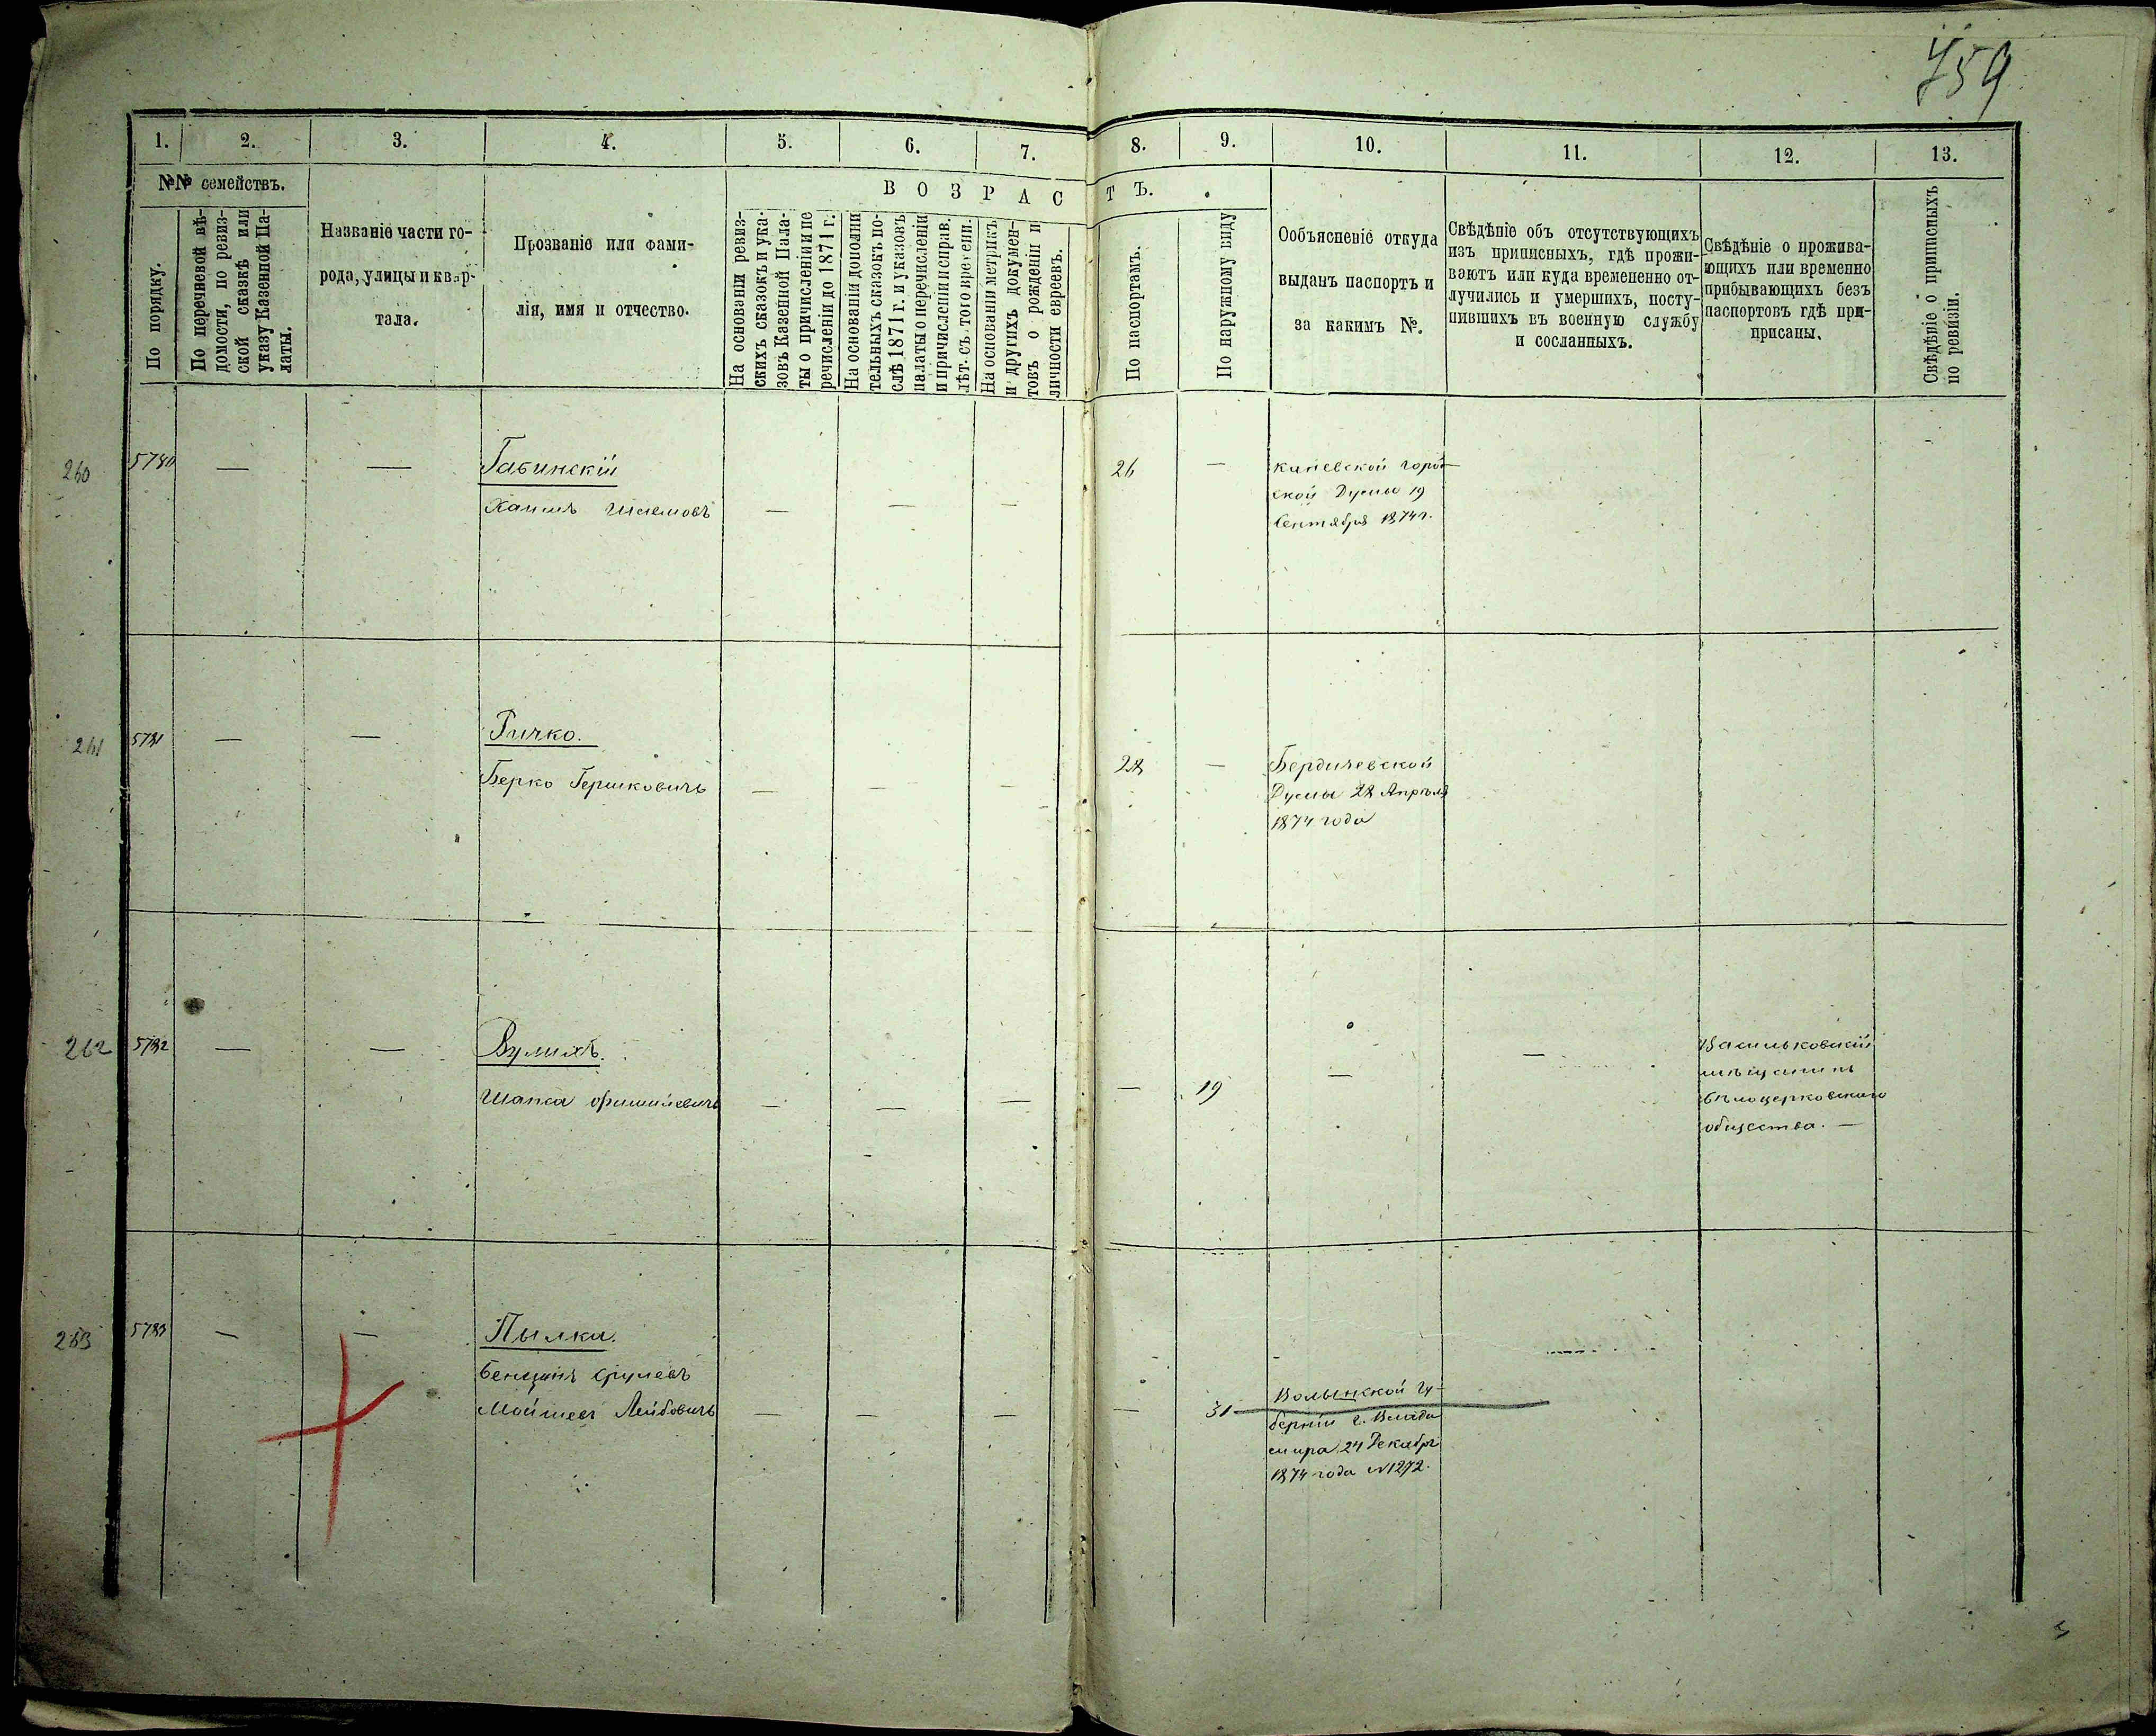 459
1. 2. 3. 4. 5. 6. 7. 8. 9. 10. 11. 12. 13.
№№ семействъ.
По порядку.
По перечневой вѣ-
домости, по ревиз-
ской сказкѣ или
указу Казенной Па-
латы.
Названіе части го-
рода, улицы и квар-
тала.
Прозваніе или фами-
лія, имя и отчество.
ВОЗРАСТЪ.
На основаніи ревиз-
скихъ сказокъ и ука-
зовъ Казенной Пала-
ты о причисленіи и пе
речисленіи до 1871 г.
На основаніи дополни
тельныхъ сказокъ по-
слѣ 1871 г. и указовъ
палаты о перечисленіи
и причисленіи и справ.
лѣт. съ того времени.
На основани метрикъ
и другихъ докумен-
товъ о рожденіи и
личности евреевъ.
По паспортамъ.
По наружному виду
Ообъясненіе откуда
выданъ паспортъ и
за какимъ №.
Свѣдѣніе объ отсутствующихъ
изъ приписныхъ, гдѣ прожи-
ваютъ или куда временно от-
лучились и умершихъ, посту-
пившихъ въ военную службу
и сосланныхъ.
Свѣдѣніе о прожива-
ющихъ или временно
прибывающихъ безъ
паспортовъ гдѣ при-
присаны.
Свѣдѣніе о приписныхъ
по ревизіи.
260 5780 — — Габинскій 26 —
Хаимъ — — —
городской Думы 19
Сентября 1874 г.
261 5781 — — Гичко.
Берко Гершковичъ — — — 28 —
Бердичевской
Думы 28 Апрѣля
1874 года
262 5782 — — Вулихъ.
— — — — 19 — —
Васильковскій
мѣщанинъ
бѣлоцерковскаго
общества. —
263 5783 — — Пылка.
Бенціонъ Срулевъ
Лейбовичъ — — — — 31
Волынской гу-
берніи г. Влади
мира 24 Декабря
1874 года №1272.